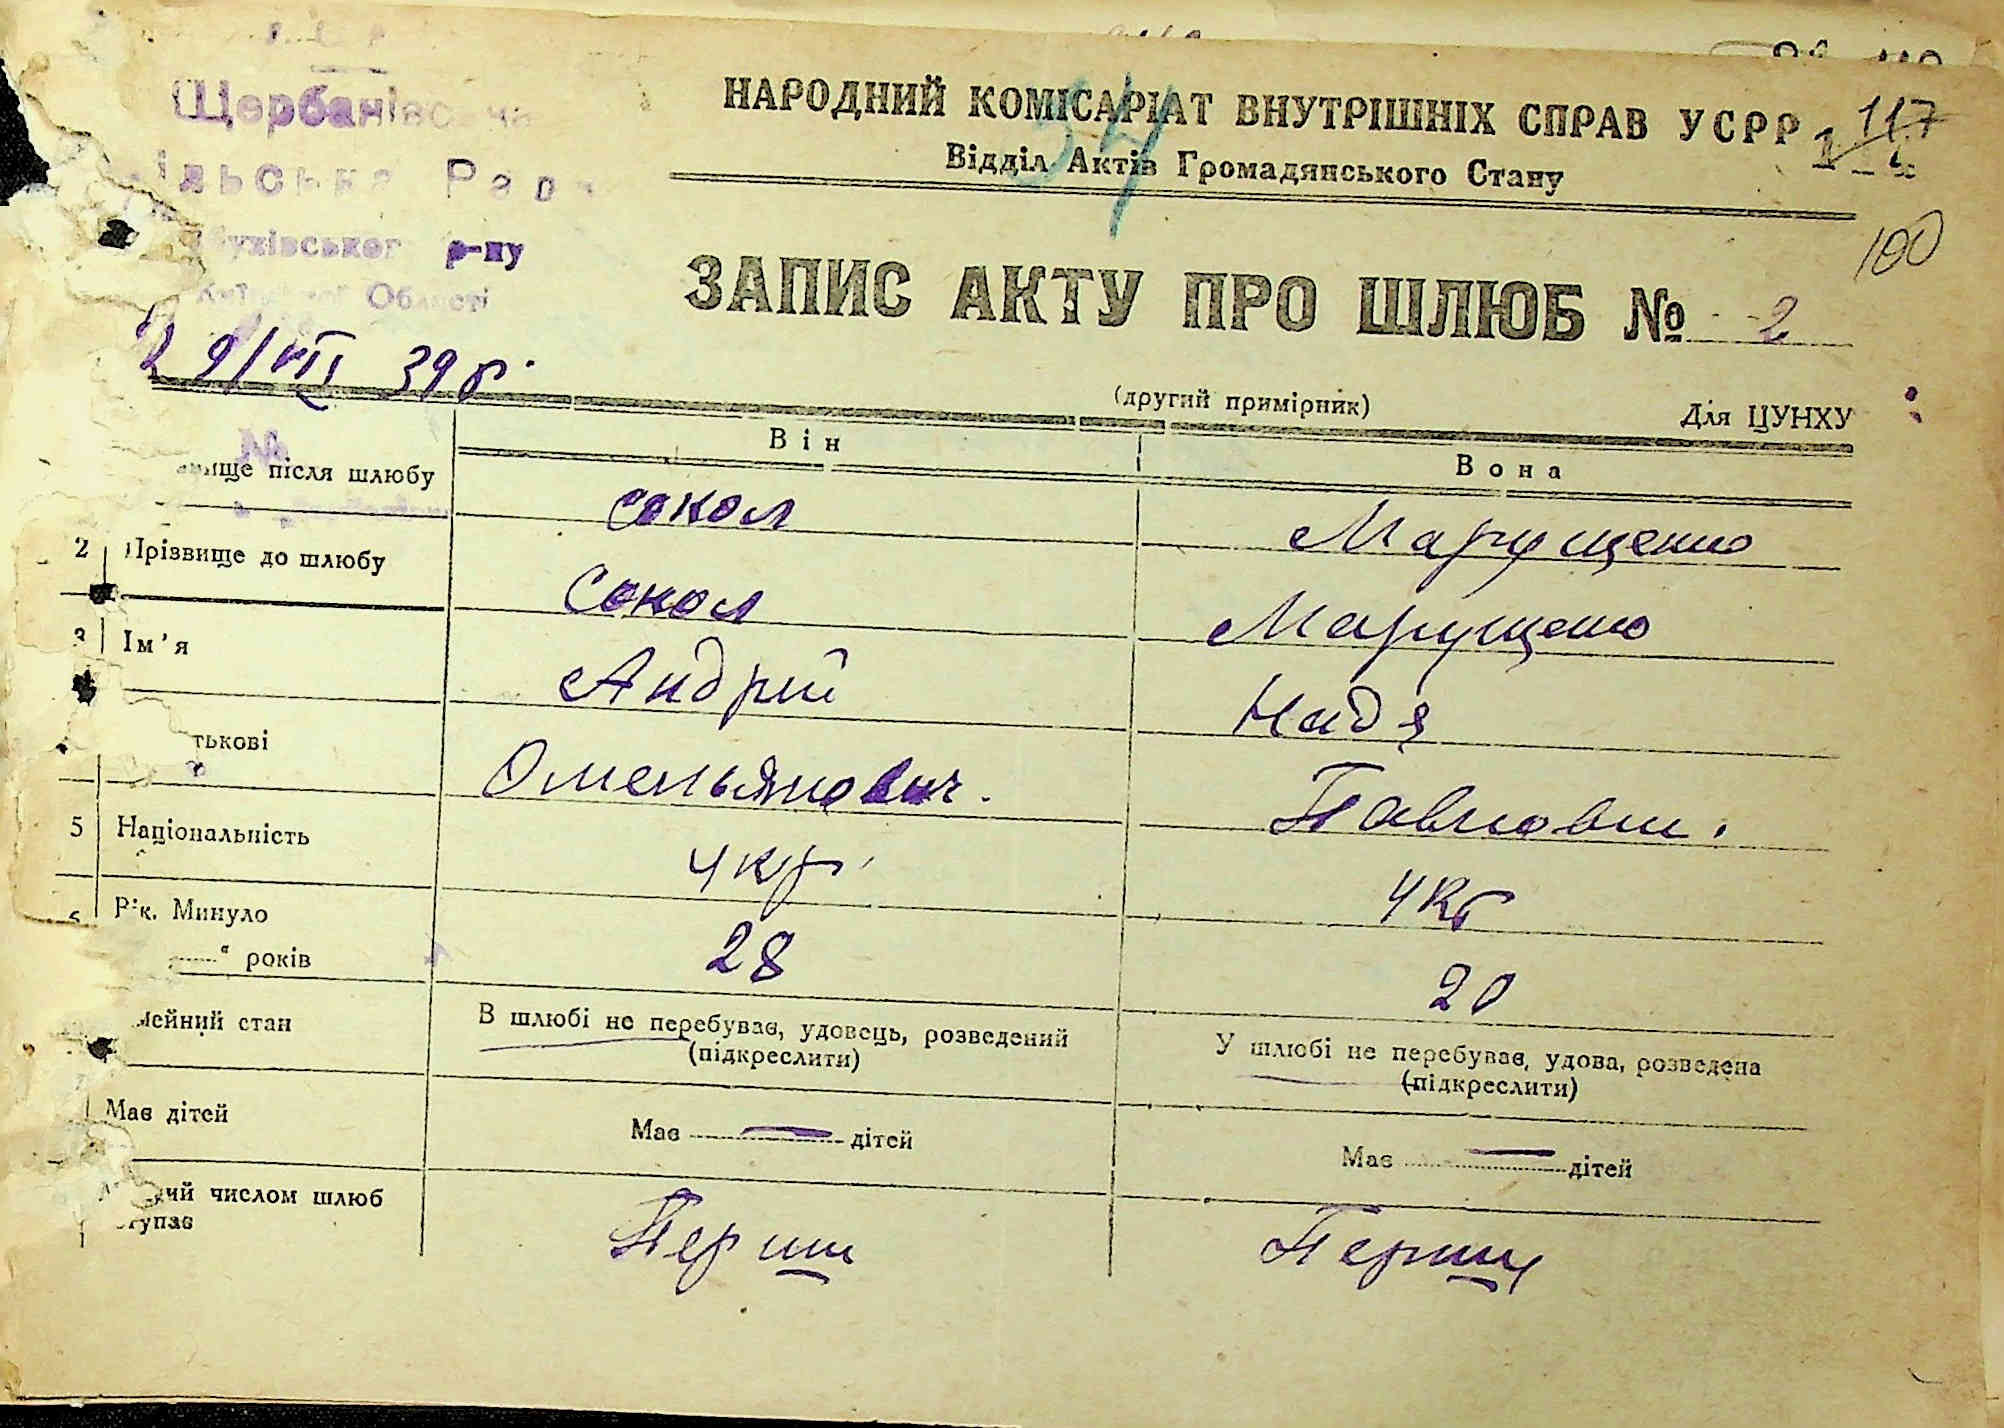 Щербанівська
ільська Рада
ухівськог р-ну
Київської Області
НАРОДНИЙ КОМІСАРІАТ ВНУТРІШНІХ СПРАВ УСРР
117
Відділ Актів Громадянського Стану
54
100
ЗАПИС АКТУ ПРО ШЛЮБ № 2
29/VIII 39 р.
(другий примірник)
Для ЦУНХУ
№
Він
Вона
вище після шлюбу
Сокол
Марущенко
2 Прізвище до шлюбу
Сокол
Марущенко
3 Ім'я
Андрій
Надя
тькові
Омельянович.
Павловн.
5 Національність
Укр
Укр
6 Рік. Минуло
" років
28
20
мейний стан
В шлюбі не перебуває, удовець, розведений
(підкреслити)
У шлюбі не перебуває, удова, розведена
(підкреслити)
Має дітей
Має — дітей
Має — дітей
чий числом шлюб
ступає
Перший
Перший